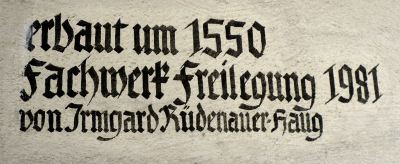 erbaut um 1550
Fachwerk-Freilegung 1981
von Irmgard Rüdenauer-Haug